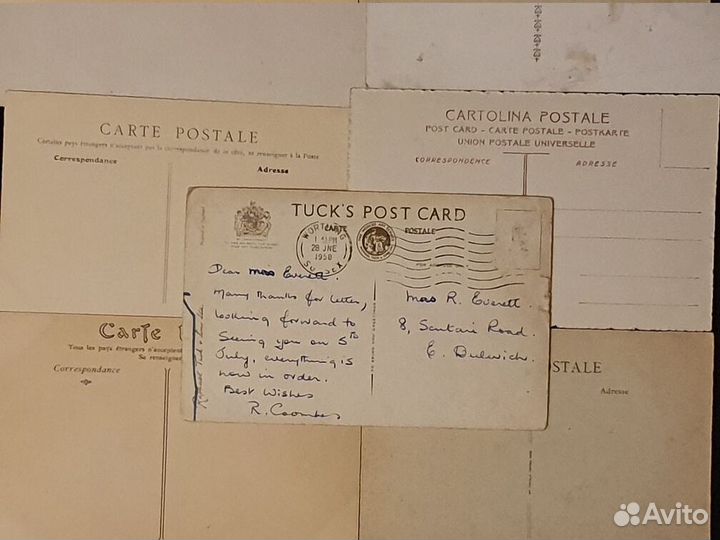 CARTE POSTALE
Certains pays étrangers n'acceptent pas la correspondance de ce côté, se renseigner à la Poste
Correspondance
Adresse
CARTOLINA POSTALE
POST CARD - CARTE POSTALE - POSTKARTE
UNION POSTALE UNIVERSELLE
CORRESPONDENCE
ADRESSE
TUCK'S POST CARD
CARTE
POSTALE
WORTHING
28 JNE
1950
SUSSEX
Dear Mrs Everett.
Many thanks for letter,
looking forward to
seeing you on 5th
July, everything is
now in order.
Best Wishes
R. Coombes
Mrs R. Everett.
8, Road.
E. Dulwich.
Carte
Tous les pays étrangers n'acceptent
Se renseigner
Correspondance
STALE
Adresse
Avito